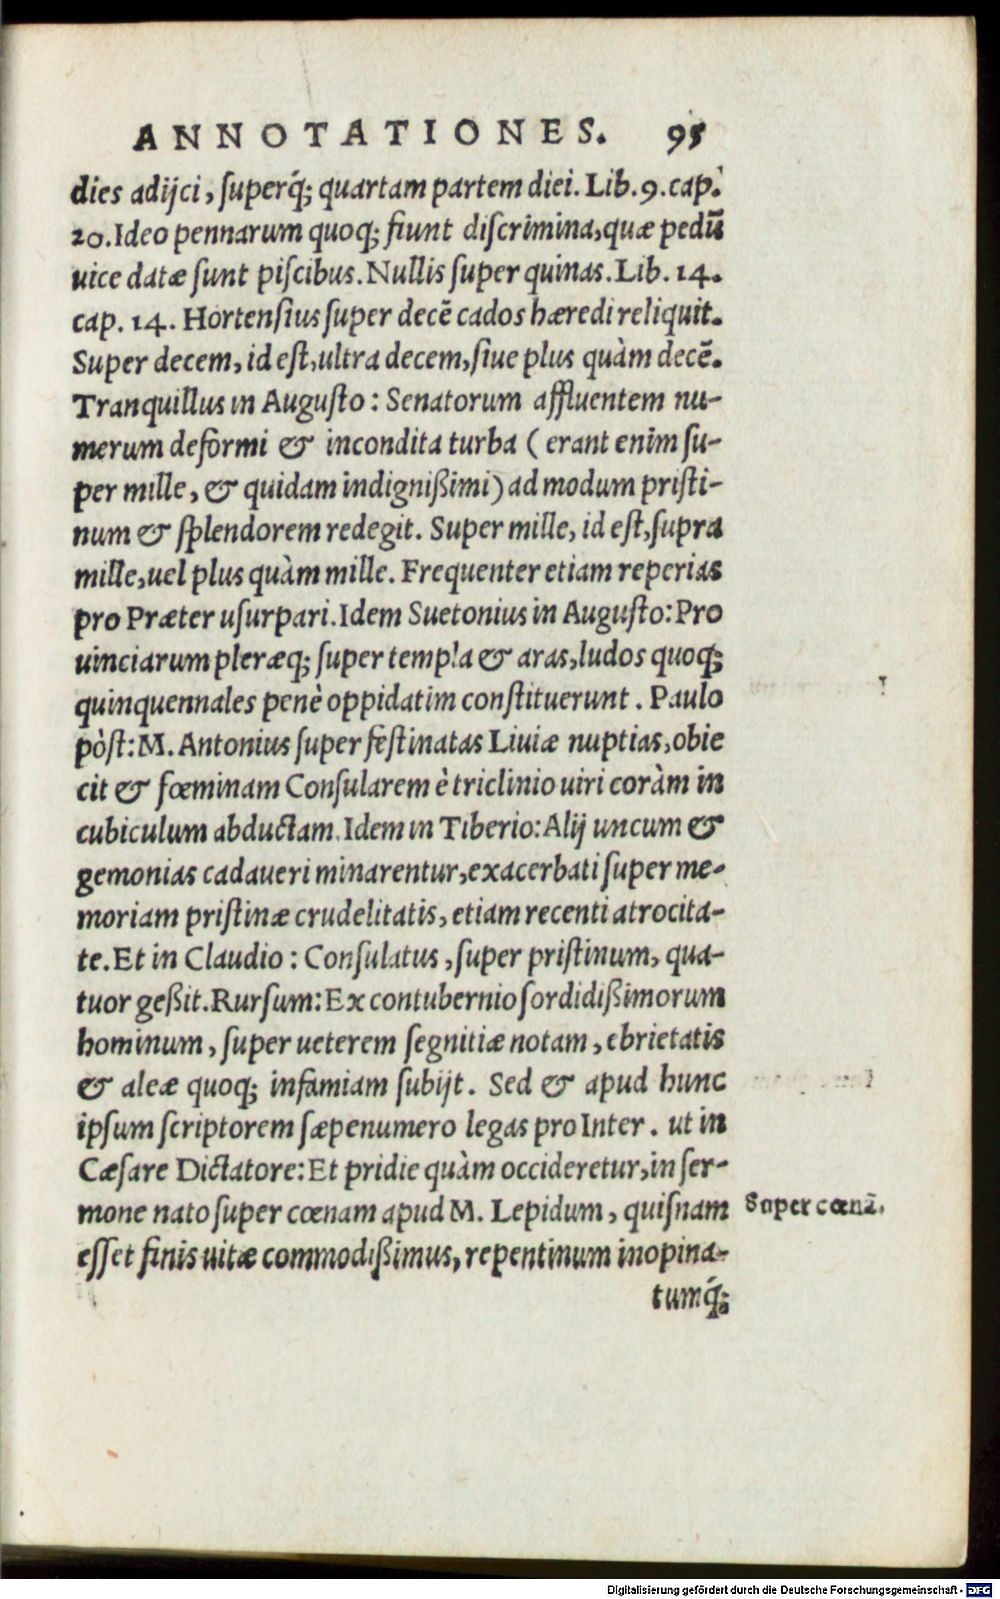 ANNOTATIONES. 95
dies adijci, superq́; quartam partem diei. Lib. 9. cap.
20. Ideo pennarum quoq; fiunt discrimina, quæ pedū
uice datæ sunt piscibus. Nullis super quinas. Lib. 14.
cap. 14. Hortensius super decē cados hæredi reliquit.
Super decem, id est, ultra decem, siue plus quàm decē.
Tranquillus in Augusto: Senatorum affluentem nu-
merum deformi & incondita turba (erant enim su-
per mille, & quidam indignißimi) ad modum pristi-
num & splendorem redegit. Super mille, id est, supra
mille, uel plus quàm mille. Frequenter etiam reperias
pro Præter usurpari. Idem Suetonius in Augusto: Pro
uinciarum pleræq; super templa & aras, ludos quoq;
quinquennales penè oppidatim constituerunt. Paulo
pòst: M. Antonius super festinatas Liuiæ nuptias, obie
cit & fœminam Consularem è triclinio uiri coràm in
cubiculum abductam. Idem in Tiberio: Alij uncum &
gemonias cadaueri minarentur, exacerbati super me-
moriam pristinæ crudelitatis, etiam recenti atrocita-
te. Et in Claudio: Consulatus, super pristinum, qua-
tuor geßit. Rursum: Ex contubernio sordidißimorum
hominum, super ueterem segnitiæ notam, ebrietatis
& aleæ quoq; infamiam subijt. Sed & apud hunc
ipsum scriptorem sæpenumero legas pro Inter. ut in
Cæsare Dictatore: Et pridie quàm occideretur, in ser-
mone nato super cœnam apud M. Lepidum, quisnam
Super cœnā.
esset finis uitæ commodißimus, repentinum inopina-
tumq́;
Digitalisierung gefördert durch die Deutsche Forschungsgemeinschaft - DFG